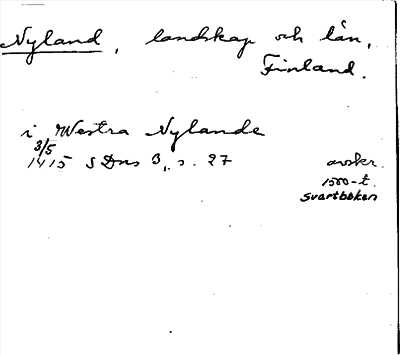 Nyland, landskap och län,
Finland.
i Westra Nylande
3/5
1415 SDns 3, s. 27 avskr.
1500-t.
Svartboken